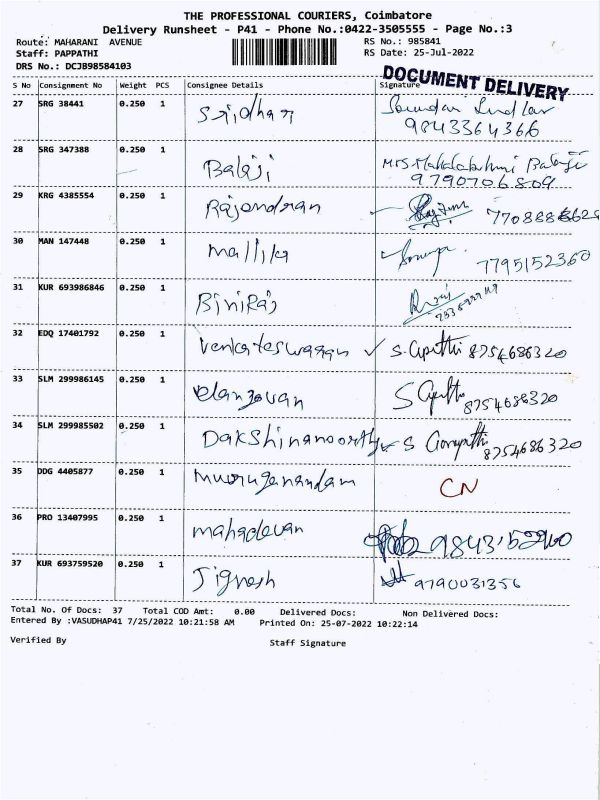 THE PROFESSIONAL COURIERS, Coimbatore
Delivery Runsheet - P41 - Phone No.:0422-3505555 - Page No.:3
Route: MAHARANI AVENUE RS No.: 985841
Staff: PAPPATHI RS Date: 25-Jul-2022
DRS No.: DCJB98584103
DOCUMENT DELIVERY
S No Consignment No Weight PCS Consignee Details Signature
27 SRG 38441 0.250 1 Sridhar
9843364366
28 SRG 347388 0.250 1 Balaji Mrs Mahalakshmi Balaji
9790706809
29 KRG 4385554 0.250 1 Rajendran
30 MAN 147448 0.250 1 Mallika 7795152360
31 KUR 693986846 0.250 1 BiniRaj
32 EDQ 17401792 0.250 1 Venkateswaran ✓ S. 8754686320
33 SLM 299986145 0.250 1 elangovan S 8754686320
34 SLM 299985502 0.250 1 Dakshinamoorthy S 8754686320
35 DDG 4405877 0.250 1 Muruganandam CN
36 PRO 13407995 0.250 1 mahadevan
37 KUR 693759520 0.250 1 Jignesh 9790031356
Total No. Of Docs: 37 Total COD Amt: 0.00 Delivered Docs: Non Delivered Docs:
Entered By :VASUDHAP41 7/25/2022 10:21:58 AM Printed On: 25-07-2022 10:22:14
Verified By Staff Signature